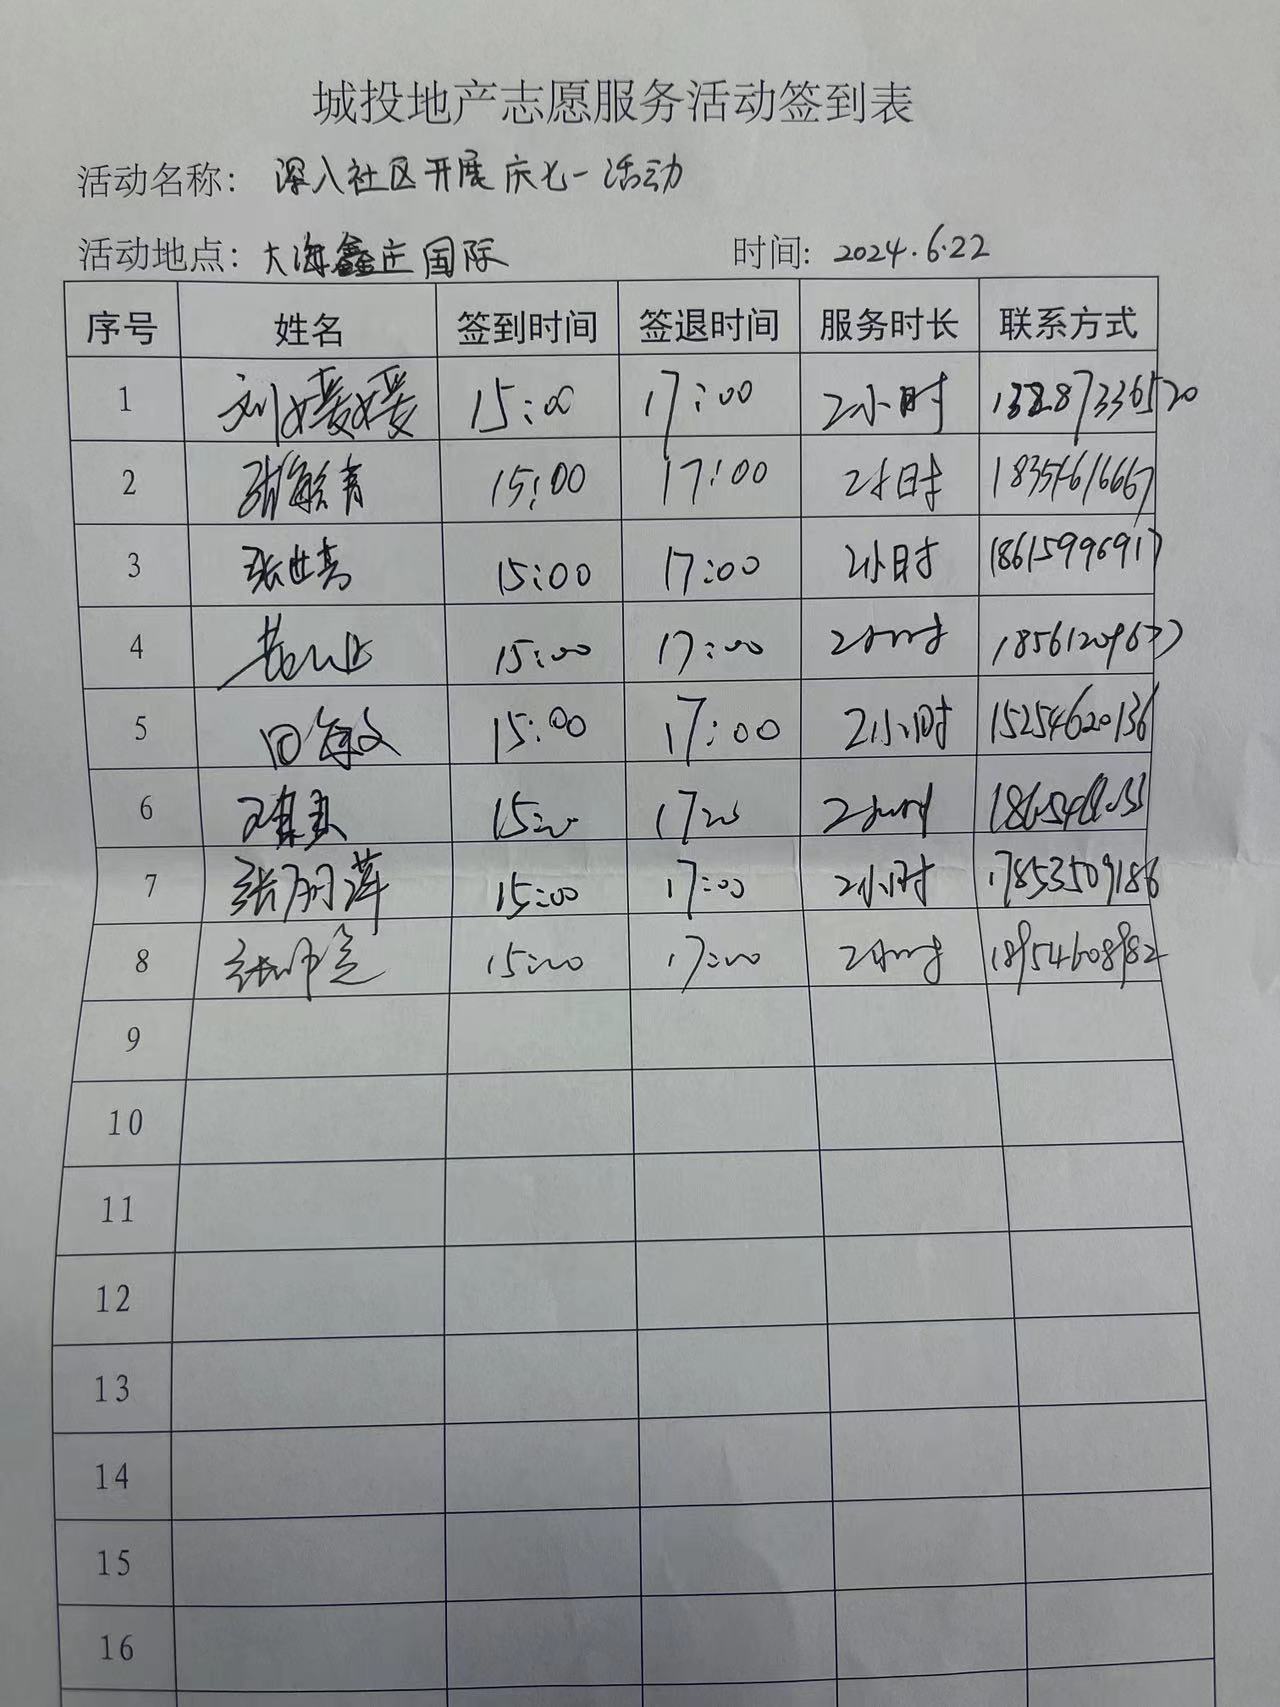 城投地产志愿服务活动签到表
活动名称: 深入社区开展庆七一活动
活动地点: 大海鑫庄国际 时间: 2024.6.22
序号 姓名 签到时间 签退时间 服务时长 联系方式
1 刘媛媛 15:00 17:00 2小时
2 张敏青 15:00 17:00 2小时 18354616667
3 张世高 15:00 17:00 2小时 18615996917
4 15:00 17:00 2小时 18561209677
5 15:00 17:00 2小时 15254620136
6 15:00 17:00 2小时
7 张丽萍 15:00 17:00 2小时 17853509186
8 15:00 17:00 2小时 18954608982
9
10
11
12
13
14
15
16